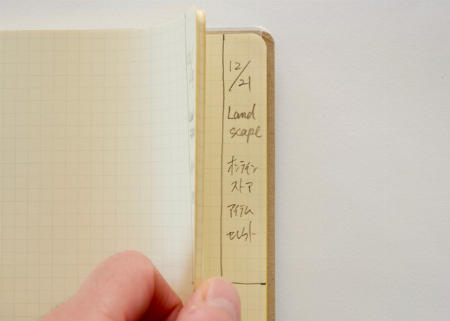 12/21
Land
scape
オンライン
ストア
アイテム
セレクト